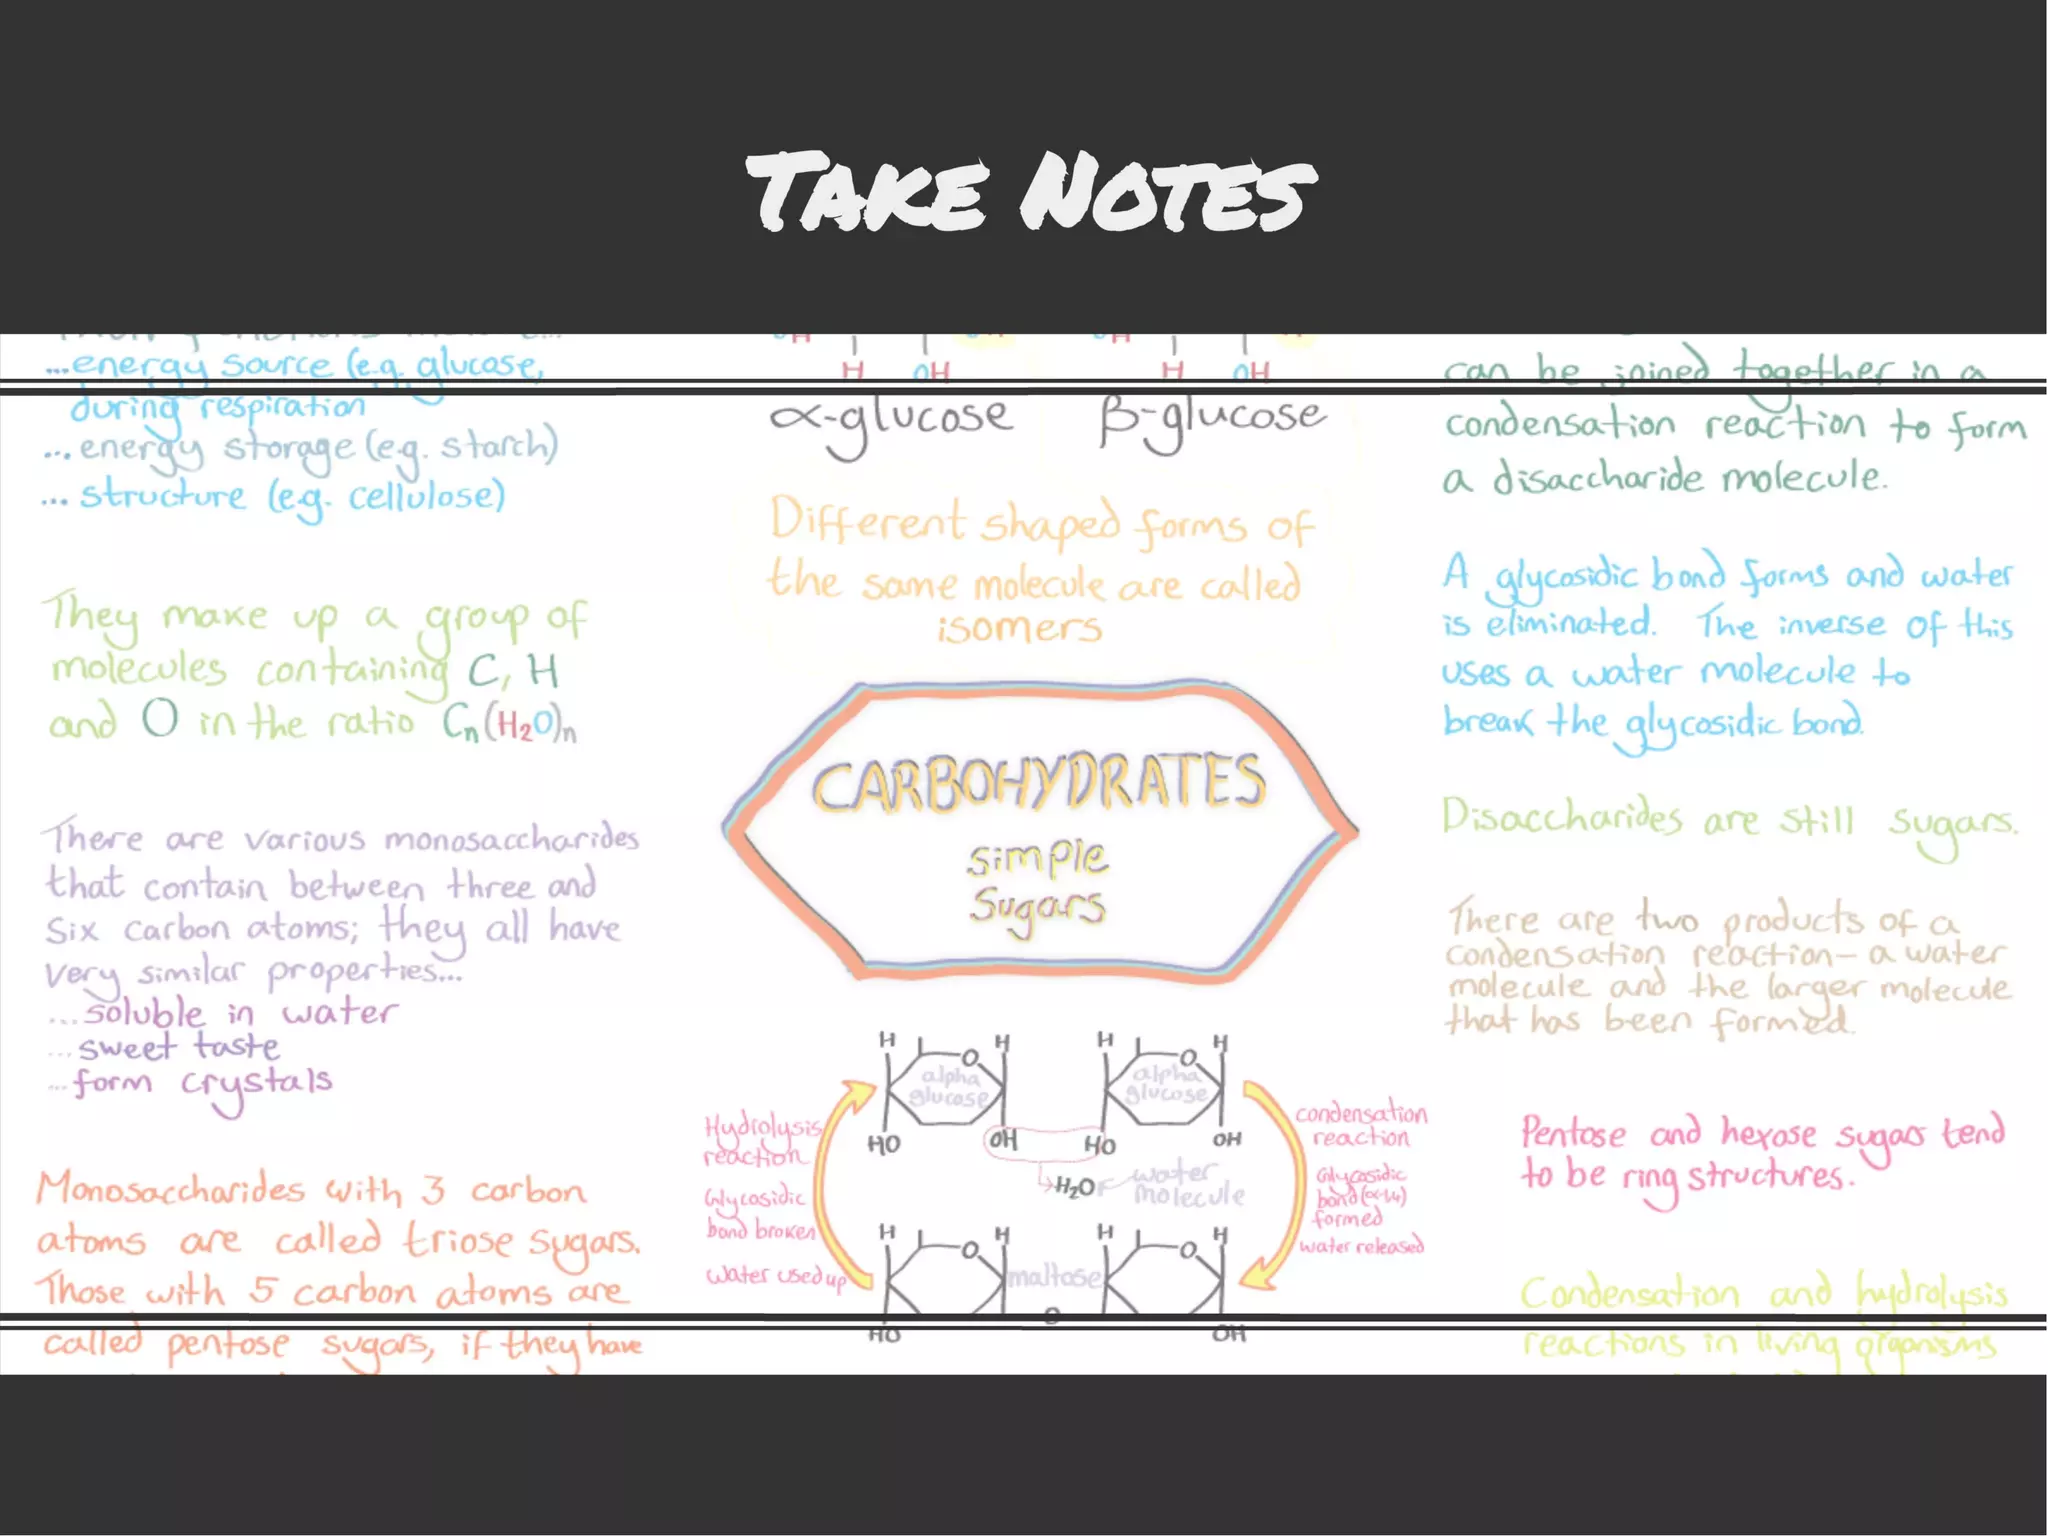 TAKE NOTES
...energy source (e.g. glucose,
during respiration
...energy storage (e.g. starch)
...structure (e.g. cellulose)
They make up a group of
molecules containing C, H
and O in the ratio Cn(H2O)n
There are various monosaccharides
that contain between three and
six carbon atoms; they all have
very similar properties...
...soluble in water
...sweet taste
...form crystals
Monosaccharides with 3 carbon
atoms are called triose sugars.
Those with 5 carbon atoms are
called pentose sugars, if they have
OH OH
H OH H OH
α-glucose β-glucose
Different shaped forms of
the same molecule are called
isomers
CARBOHYDRATES
simple
sugars
H H H H
O O
alpha alpha
glucose glucose
HO OH HO OH
H2O water
molecule
Hydrolysis
reaction
Glycosidic
bond broken
water used up
condensation
reaction
Glycosidic
bond (α-1,4)
formed
water released
H H H H
O O
maltose
O
HO OH
can be joined together in a
condensation reaction to form
a disaccharide molecule.
A glycosidic bond forms and water
is eliminated. The inverse of this
uses a water molecule to
break the glycosidic bond.
Disaccharides are still sugars.
There are two products of a
condensation reaction – a water
molecule and the larger molecule
that has been formed.
Pentose and hexose sugars tend
to be ring structures.
Condensation and hydrolysis
reactions in living organisms